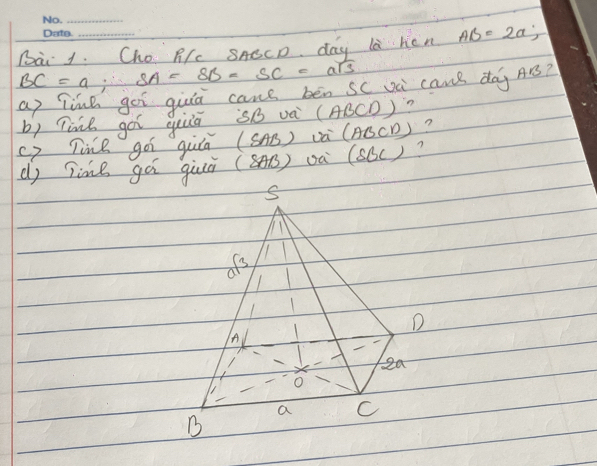 No. ..................
Date. ..................
Bài 1. Cho h/c SABCD. đáy là hcn AB = 2a;
BC = a; SA = SB = SC = a√3
a) Tính gói giữa cạnh bên SC và cạnh đáy AB?
b) Tính gói giữa SB và (ABCD)?
c) Tính gói giữa (SAB) và (ABCD)?
d) Tính gói giữa (SAB) và (SBC)?
S
a√3
A
D
2a
O
B
a
C